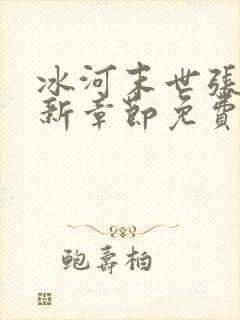 冰河末世张
新章节免费
鲍寿柏